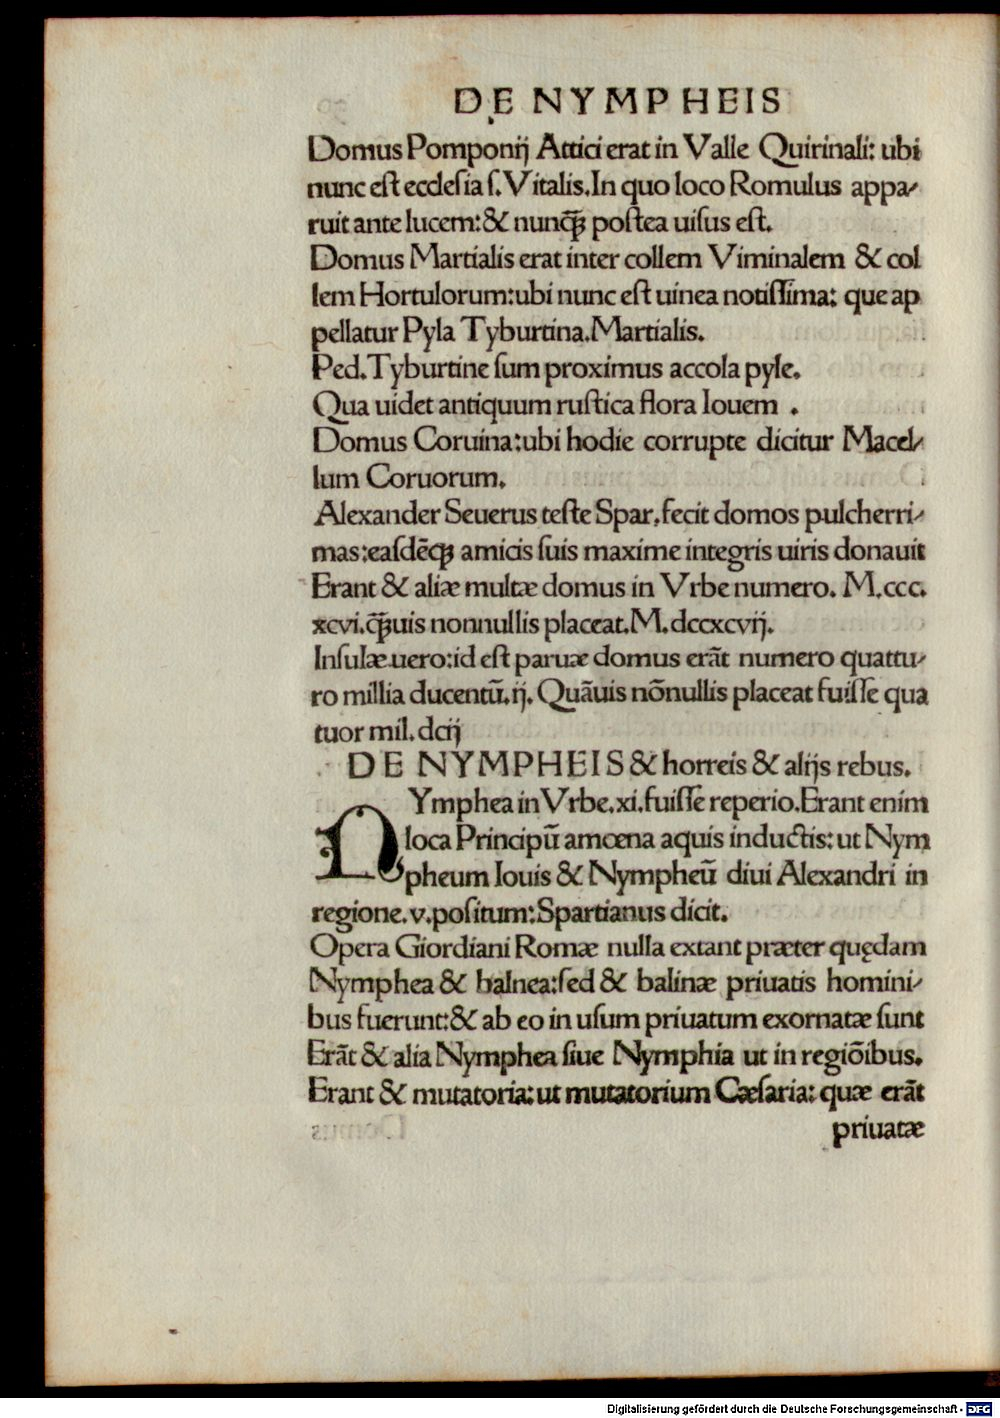 DE NYMPHEIS
Domus Pomponij Attici erat in Valle Quirinali: ubi
nunc eſt eccleſia ſ. Vitalis. In quo loco Romulus appa⸗
ruit ante lucem: & nunꝗ̃ poſtea uiſus eſt.
Domus Martialis erat inter collem Viminalem & col
lem Hortulorum: ubi nunc eſt uinea notiſſima: que ap
pellatur Pyla Tyburtina. Martialis.
Ped. Tyburtine ſum proximus accola pyle.
Qua uidet antiquum ruſtica flora Iouem .
Domus Coruina: ubi hodie corrupte dicitur Macel⸗
lum Coruorum.
Alexander Seuerus teſte Spar. fecit domos pulcherri⸗
mas: eaſdēꝗ amicis ſuis maxime integris uiris donauit
Erant & aliæ multæ domus in Vrbe numero. M.ccc.
xcvi. ꝗ̃uis nonnullis placeat. M.dccxcvij.
Inſulæ uero: id eſt paruæ domus erāt numero quattu⸗
ro millia ducentū. ij. Quāuis nōnullis placeat fuiſſe qua
tuor mil. dcij
DE NYMPHEIS & horreis & alijs rebus.
NYmphea in Vrbe. xi. fuiſſe reperio. Erant enim
loca Principū amœna aquis inductis: ut Nym
pheum Iouis & Nympheū diui Alexandri in
regione. v. poſitum: Spartianus dicit.
Opera Giordiani Romæ nulla extant præter quędam
Nymphea & balnea: ſed & balinæ priuatis homini⸗
bus fuerunt: & ab eo in uſum priuatum exornatæ ſunt
Erāt & alia Nymphea ſiue Nymphia ut in regiōibus.
Erant & mutatoria: ut mutatorium Cæſaria: quæ erāt
priuatæ
Digitalisierung gefördert durch die Deutsche Forschungsgemeinschaft - DFG